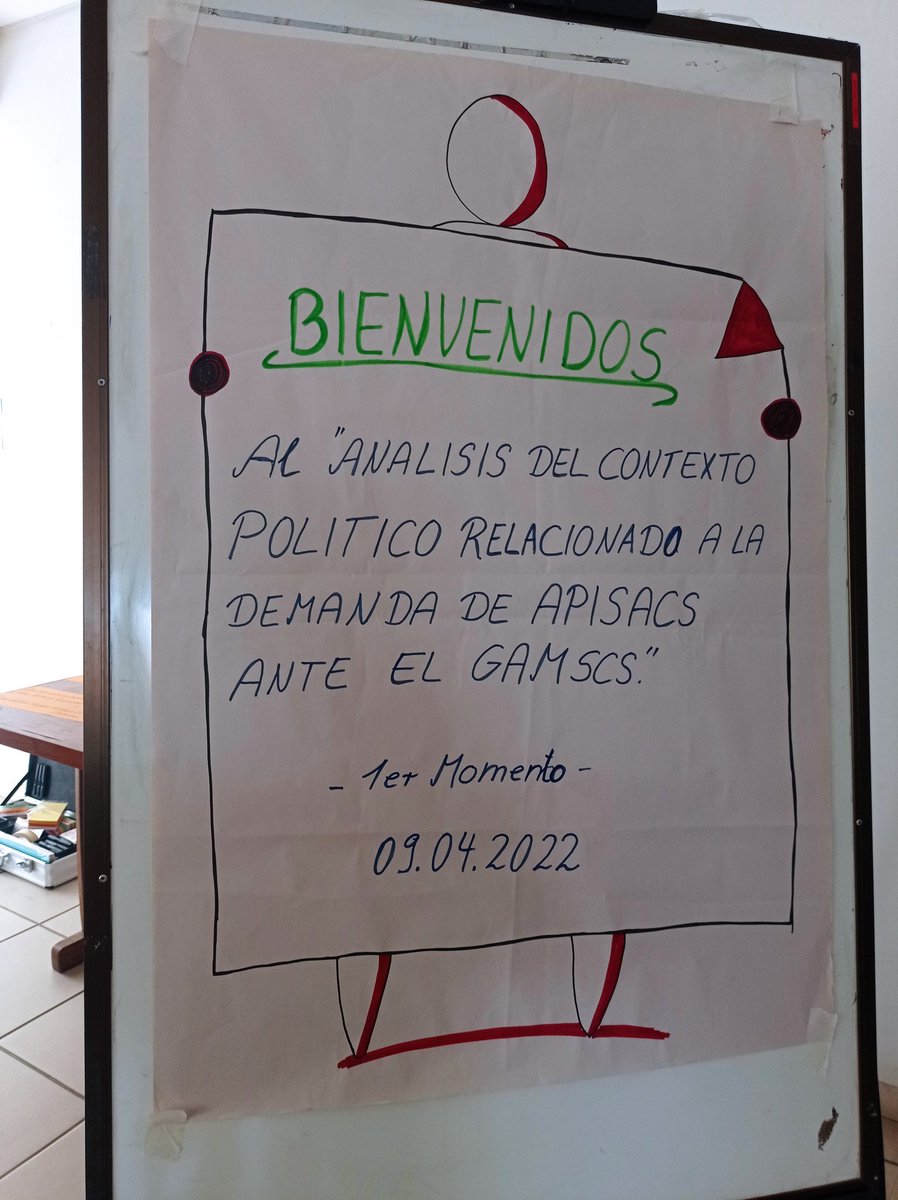 BIENVENIDOS
Al "ANALISIS DEL CONTEXTO
POLITICO RELACIONADO A LA
DEMANDA DE APISACS
ANTE EL GAMSCS."
- 1er Momento -
09.04.2022